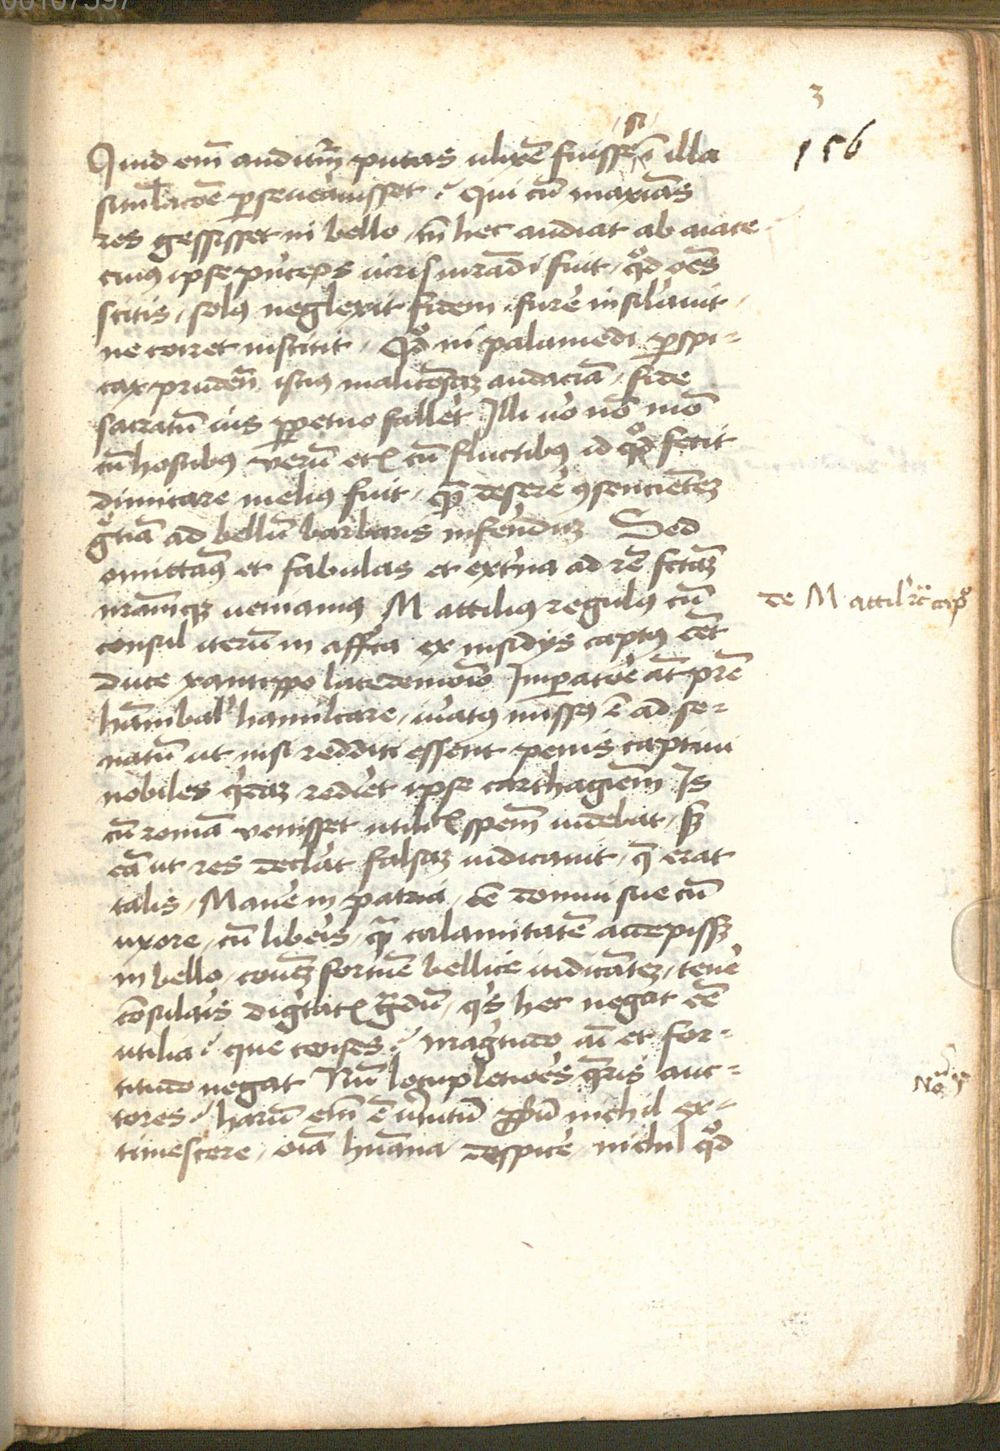 00107597
3
156
si
Quid em̄ auditur̄ putas ulixē fuisse ī illa
simulacōe ꝑseveravisset ? Qui cū maximas
res gessisset in bello / tn̄ hec audiat ab aiace
cuius ipse princeps iuris iurādi fuit / qd oēs
scitis / solus neglexit fidem / furere insilavit /
ne coiret institit / Qd ni palamedi ꝑspi-
cax prudent̄ istius malicōsaꝫ audaciā / fide
sacratū ius ꝑpetuo falleret Illi vo nō mō
cū hostibus verū etꝫ cū fluctibus id qd fecit
dimicare melius fuit / qm̄ deserere ꝯsencientēꝫ
greciā ad bellū barbaris inferendū Sed
omittamus et fabulas et externa ad rē factaꝫ
nrāmqꝫ veniamus M attilius regulus cū
consul iterū in affrica ex insidijs captus eēt
duce xantippo lacedemonio Imperatore āt prē
hānibal' hamilcare / iuratus missus ē ad se-
natū ut nisi redditi essent penis captivi
nobiles quidaꝫ rediret ipse carthaginem Is
cū romā venisset utilitatis spem̄ videbat / sꝫ
eā ut res declarat falsaꝫ iudicavit / que erat
talis / Manere in patria / eē domui sue cū
uxore / cū liberis / quā calamitatē accepissꝫ
in bello / cōmunēꝫ fortune bellice iudicātēꝫ / tenere
cōsularis dignitatis gradū / quis hec negat eē
utilia ? que censes ? Magnitudo aī et for-
titudo negat Nū locupletiores queris auc-
tores ? harū em̄ ē virtutū ꝓpriū nichil ex-
timescere / oīa humana despicere / nichil qd
de M attil' rº capº
No